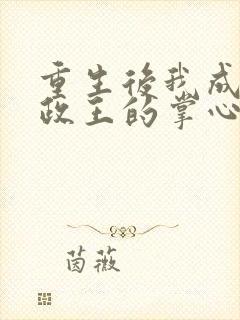 重生後我成
政王的掌心
茵薇